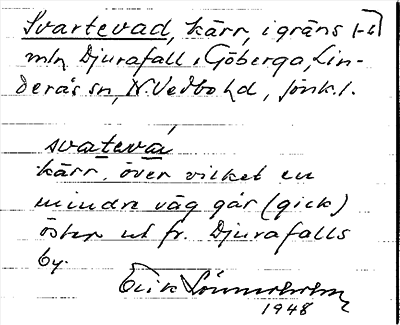 Svartevad, kärr, i gräns
mln Djurafall, Göberga, Lin-
derås sn, N. Vedbo hd, Jönk. l.
svatevá
kärr, över vilket en
mindre väg går (gick)
öster ut fr. Djurafalls
by.
Erik
1948